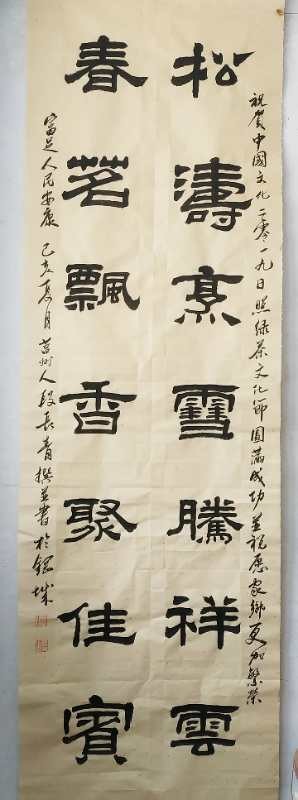 祝贺中國文化二零一九日照绿茶文化節圆满成功并祝愿家鄉更加繁荣
松濤烹雪騰祥雲
春茗飄香聚佳賓
富足人民安康 己亥夏月莒州人段長青撰並書於